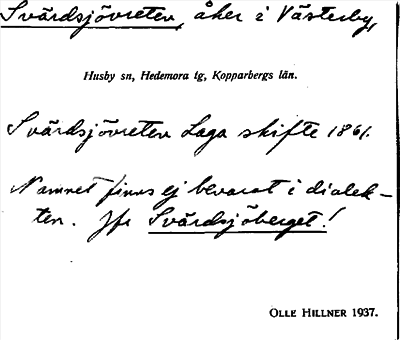 Svärdsjövreten, åker i Västerby,
Husby sn, Hedemora tg, Kopparbergs län.
Svärdsjövreten Laga skifte 1861.
Namnet finns ej bevarat i dialek-
ten. Jfr Svärdsjöberget!
OLLE HILLNER 1937.